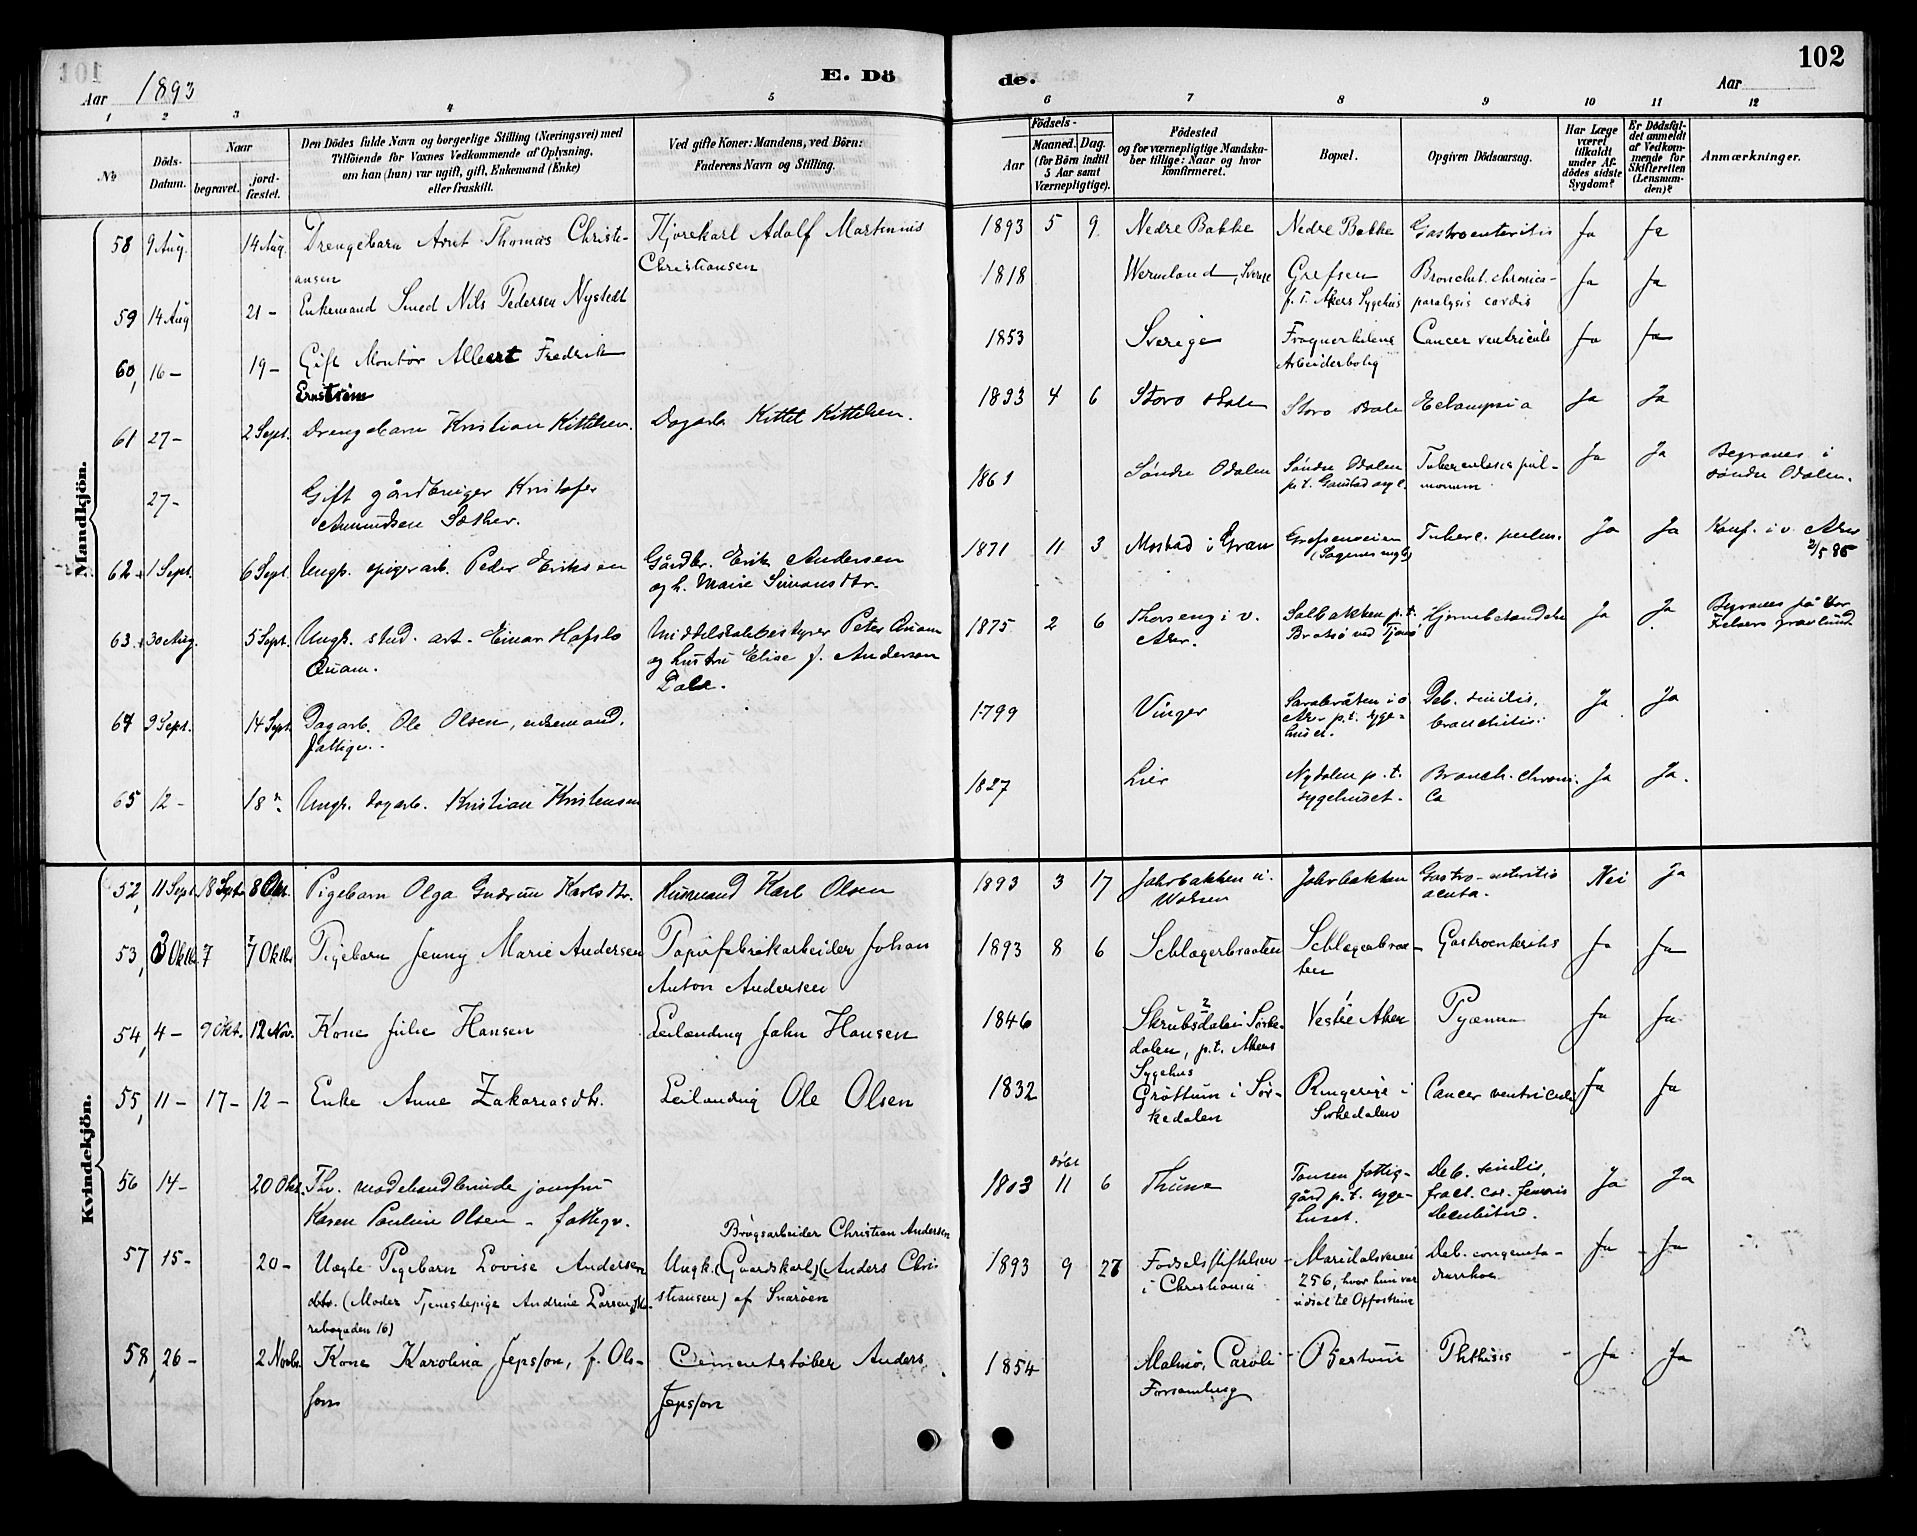 102
E. Dö de.
Aar 1893
Aar
1 2 3 4 5 6 7 8 9 10 11 12
No
Döds-Datum.
Naar
begravet.
jord-fæstet.
Den Dödes fulde Navn og borgerlige Stilling (Næringsvei) med
Tilföiende for Vaxnes Vedkommende af Oplysning,
om han (hun) var ugift, gift, Enkemand (Enke)
eller fraskilt.
Ved gifte Koner: Mandens, ved Börn:
Faderens Navn og Stilling.
Födsels-
Aar
Maaned. Dag.
(for Börn indtil
5 Aar samt
Værnepligtige).
Födested
og for værnepligtige Mandska-
ber tillige: Naar og hvor
konfirmeret.
Bopæl.
Opgiven Dödsaarsag.
Har Læge
været
tilkaldt
under Af-
dödes sidste
Sygdom?
Er Dödsfal-
det anmeldt
af Vedkom-
mende for
Skifteretten
(Lensman-
den)?
Anmærkninger.
Mandkjön.
58 9 Aug. 14 Aug. Drengebarn Arnt Thomas Christi-
ansen
Kjørekarl Adolf Martinius
Christiansen
1893 5 9 Nedre Bakke Nedre Bakke Gastroenteritis Ja Ja
59 14 Aug 21 - Enkemand Smed Nils Pedersen Nystedt
1818 Wermland, Sverige Grefsen
p. t. Akers Sygehus
Bronchit. chronica-
paralysis cordis Ja Ja
60, 16 - 19 - Gift Montør Albert Fredrik
Ernström
1853 Sverige Frognerkilens
Arbeiderbolig Cancer ventriculi Ja Ja
61 27 - 2 Sept. Drengebarn Kristian Kittilsen. Dagarb. Kittel Kittilsen.
1893 4 6 Storo Storo Eclampsia Ja Ja
27 - Gift gårdbruger Kristofer
Amundsen Sæther.
1861 Søndre Odalen Søndre Odalen
p. t. Gaustad asyl.
Tuberculosis pul-
monum Ja Ja Begraves i
søndre Odalen.
62 1 Sept. 6 Sept. Ungk. spigerarb. Peder Eriksen Gårdbr. Erik Andersen
og h. Marie Simonsdtr.
1871 11 3 Mostad i Gran Grefsenveien
Tuberc. pulm. Ja Ja Konf. i v. Aker
63 30 Aug. 5 Sept. Ungk. stud. art. Einar Hofslo
Quam.
Middelskolebestyrer Peter Quam
og hustru Elise f. Anderson
Dale.
1875 2 6 Thorseng i v.
Aker. Solbakken p. t.
Bratsø ved Tjømø Hjernebetændelse Ja Ja Begraves på Vor
Frelsers gravlund
64 9 Sept. 14 Sept. Dagarb. Ole Olsen, enkemand.
fattigv.
1799 Vinger Sarabråten i ø
Aker p. t. syge-
huset. Deb. senilis,
bronchitis. Ja Ja
65 12 - 18 " Ungk. dagarb. Kristian Kristensen
1827 Lier Nydalen p. t.
sygehuset. Bronch. chroni-
ca Ja Ja.
Kvindekjön.
52, 11 Sept. 18 Sept. 8 Okt. Pigebarn Olga Gudrun Karlsdtr. Husmand Karl Olsen
1893 3 17 Jahrbakken u.
Jahrbakken Gastro-enteritis
acuta. Nei Ja
53, 3 Oktb. 7 7 Oktb. Pigebarn Jenny Marie Andersen Papirfabrikarbeider Johan
Anton Andersen
1893 8 6 Schlagerbraaten Schlagerbraa-
ten Gastroenteritis Ja Ja
54, 4 - 9 Okt. 12 Nov. Kone Julie Hansen Leilænding John Hansen
1846 Skrubsdalen i Sørke-
dalen, p. t. Akers
Sygehus Vestre Aker Pyæmia Ja Ja
55, 11 - 17 - 12 - Enke Anne Zakariasdtr. Leilænding Ole Olsen
1832 Grøttum i Sør-
kedalen Ringerige i
Sørkedalen Cancer ventriculi Ja Ja
56 14 - 20 Okt. Fhv. modehandlerinde jomfru
Karen Pauline Olsen - fattigv.
1803 11 6 Thune Tonsen fattig-
gård p. t. syge-
huset. Deb. senilis,
fract. col. femoris
Decubitus. Ja Ja
57 15 - 20 - Uægte Pigebarn Lovise Andersen
dtr. (Moder Tjenestepige Andrine Larsen,
16)
Brugsarbeider Christian Andersen
Ungk. (Gaardskarl) (Anders Chri
stiansen) af Snarøen
1893 9 27 Fødselsstiftelsen
i Christiania Maridalsveien
256, hvor hun var
udsat til Opfostring Deb. congenita-
diarrhoe. Ja Ja
58, 26 - 2 Novbr. Kone Karolina Jepsson, f. Ols-
son
Cementstøber Anders
Jepsson
1854 Malmö, Caroli
Forsamling Bestum Phthisis Ja Ja